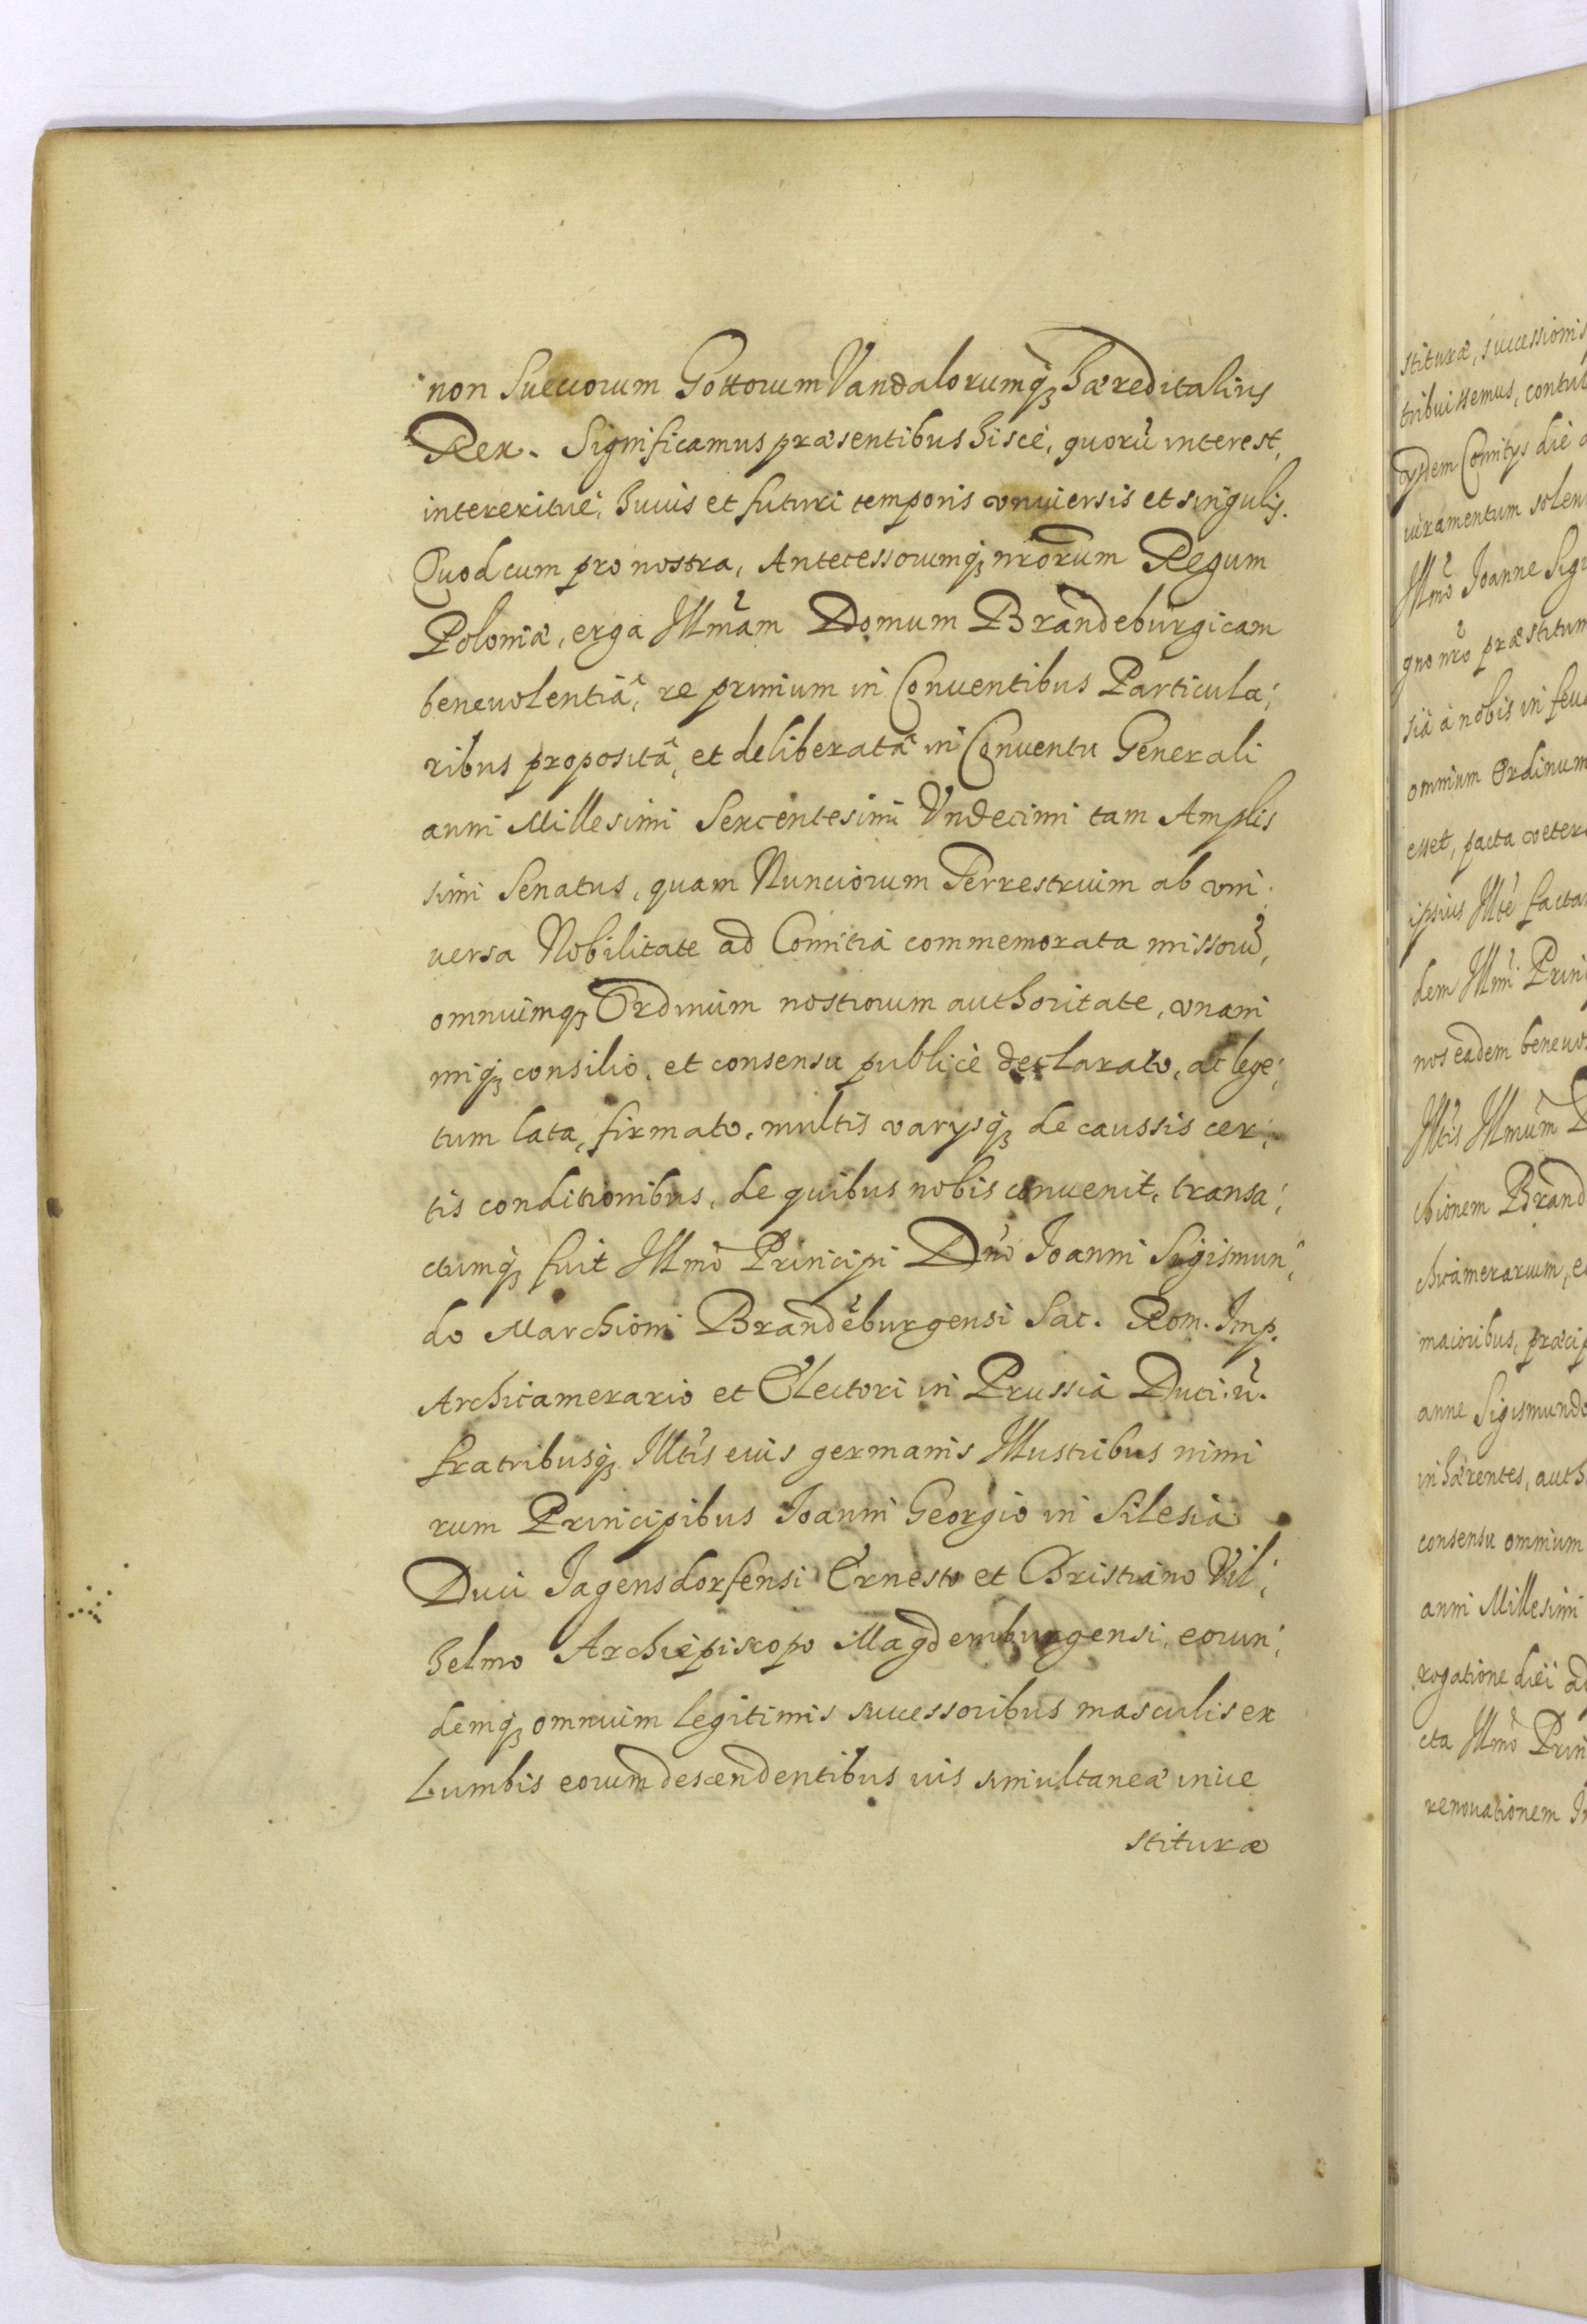 non Sueuorum Gottorum Vandalorumq̃ꝫ haereditalius
Rex. Significamus præsentibus hisce, quorũ interest,
intereritue, huius et futuri temporis vniuersis et singulis.
Quod cum pro nostra, Antecessorumqꝫ nr̃orum Regum
Poloniæ, erga Illm̃am Domum Brandeburgicam
beneuolentiâ, re primum in Conuentibus Particula:
ribus propositâ, et deliberatâ in Conuentu Generali
anni Millesimi Sexcentesimi Vndecimi tam Amplis
simi Senatus, quam Nunciorum Terrestrium ab vni:
uersa Nobilitate ad Comitia commemorata missorũ,
omniumqꝫ Ordinum nostrorum authoritate, vnani
miqꝫ consilio, et consensu publicè declarato, ac lege:
tum lata, firmato, multis varysqꝫ de caussis cer:
tis conditionibus, de quibus nobis conuenit, transa:
ctumqꝫ fuit Illm̃o Principi Dño Ioanni Sigismun:
do Marchioni Brandeburgensi Sac. Rom. Imp.
Archicamerario et Electori in Prussia Duci ũ.
fratribusqꝫ Illt̃is eius germanis Illustribus nimi
rum Principibus Ioanni Georgio in Silesia
Duci Iagensdorfensi Ernesto et Christiano Vil:
helmo Archiepiscopo Magdemburgensi, eorun:
demqꝫ omnium legitimis successoribus masculis ex
Lumbis eorum descendentibus ius simultaneæ inue
stituræ
stituræ, successionis
tribuissemus, contul
ysdem Comitys die
iuramentum solen
Illm̃o Ioanne Sigi
gno nr̃o præstitum
sia à nobis in feu
omnium Ordinum
esset, pacta veter
ipsius Illt̃e facta
dem Illm̃i Prin
nos eadem beneuo
Illt̃is Illm̃um D
chionem Brand
chicamerarium, e
maioribus, præcip
anne Sigismundo
inhærentes, auth
consensu omnium
anni Millesimi
rogatione diei ad
cta Illm̃o Prin
renouationem In